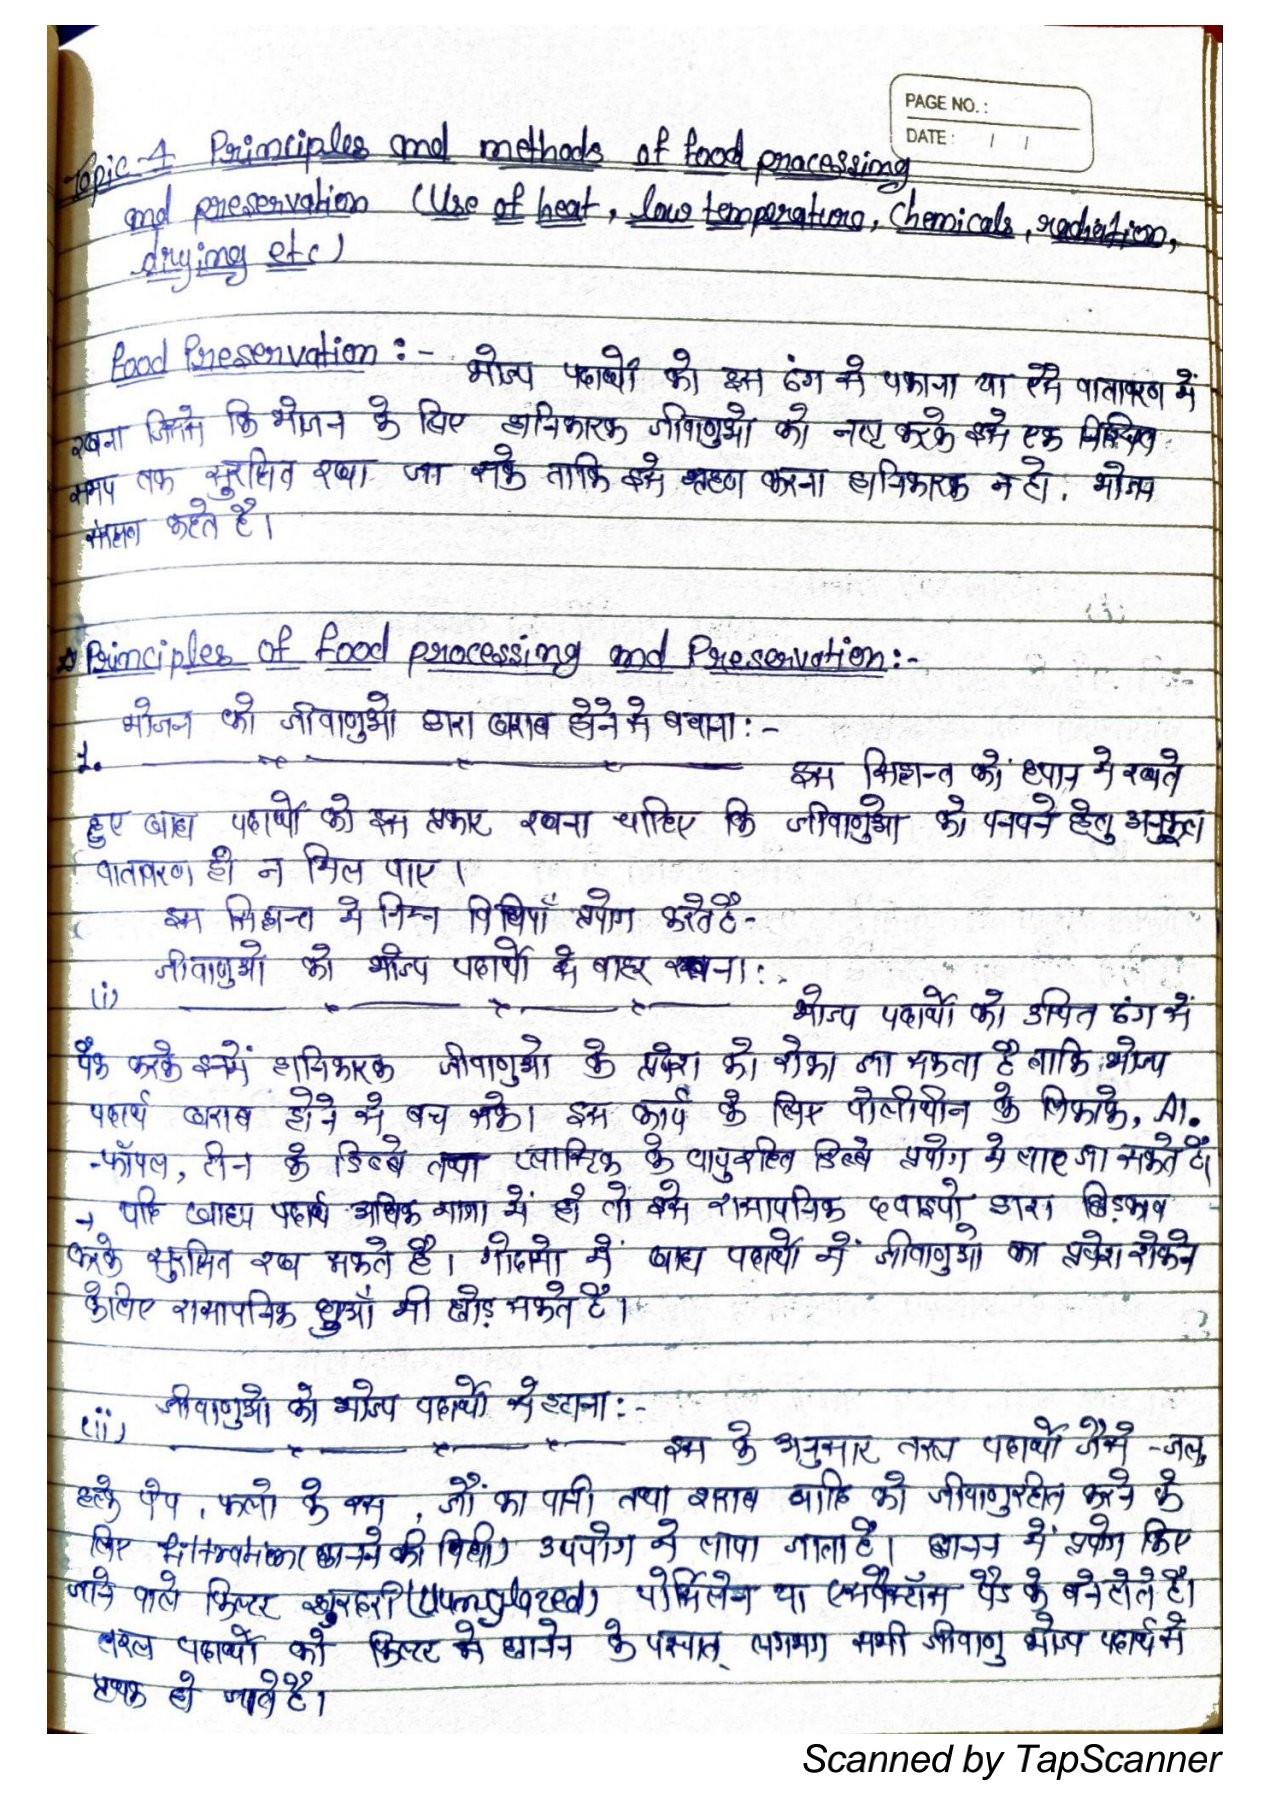 PAGE NO. :
DATE : / /
Topic-4 Principles and methods of food processing
and preservation (Use of heat, low temperature, Chemicals, radiation,
drying etc)
Food Preservation :- भोज्य पदार्थो को इस ढंग से पकाना या ऐसे वातावरण में
रखना जिससे कि भोजन के लिए हानिकारक जीवाणुओ को नष्ट करके इसे एक निश्चित
समय तक सुरक्षित रखा जा सके ताकि इसे ग्रहण करना हानिकारक न हो, भोजन
संरक्षण कहते है।
Principles of food processing and Preservation:-
भोजन को जीवाणुओ द्वारा खराब होने से बचाना:-
1. इस सिद्धान्त को ध्यान मे रखते
हुए खाद्य पदार्थो को इस प्रकार रखना चाहिए कि जीवाणुओ को पनपने हेतु अनुकूल
वातावरण ही न मिल पाए।
इस सिद्धान्त मे निम्न विधियाँ प्रयोग करते है-
जीवाणुओ को भोज्य पदार्थो से बाहर रखना:-
(i) भोज्य पदार्थो को उचित ढंग से
पैक करके इनमें हानिकारक जीवाणुओ के प्रवेश को रोका जा सकता है ताकि भोज्य
पदार्थ खराब होने से बच सके। इस कार्य के लिए पोलीथीन के लिफाफे, Al.
-फॉयल, टीन के डिब्बे तथा प्लास्टिक के वायुरहित डिब्बे प्रयोग मे लाए जा सकते है।
→ यदि खाद्य पदार्थ अधिक मात्रा में हो तो इसे रासायनिक दवाइयो द्वारा छिड़काव
करके सुरक्षित रख सकते है। गोदामो में खाद्य पदार्थो में जीवाणुओ का प्रवेश रोकने
के लिए रासायनिक धुआँ भी छोड़ सकते है।
जीवाणुओ को भोज्य पदार्थो से हटाना:-
(ii) इस के अनुसार तरल पदार्थो जैसे -जल,
हल्के पेय, फलो के रस, जौं का पानी तथा शराब आदि को जीवाणुरहित करने के
लिए filtration (छानने की विधि) उपयोग मे लाया जाता है। छानने में प्रयोग किए
जाने वाले फिल्टर खुरदरी (Unglazed) पोर्सिलेन या एसबैस्टॉस पैड के बने होते है।
तरल पदार्थो को फिल्टर से छानने के पश्चात् लगभग सभी जीवाणु भोज्य पदार्थ से
पृथक हो जाते है।
Scanned by TapScanner